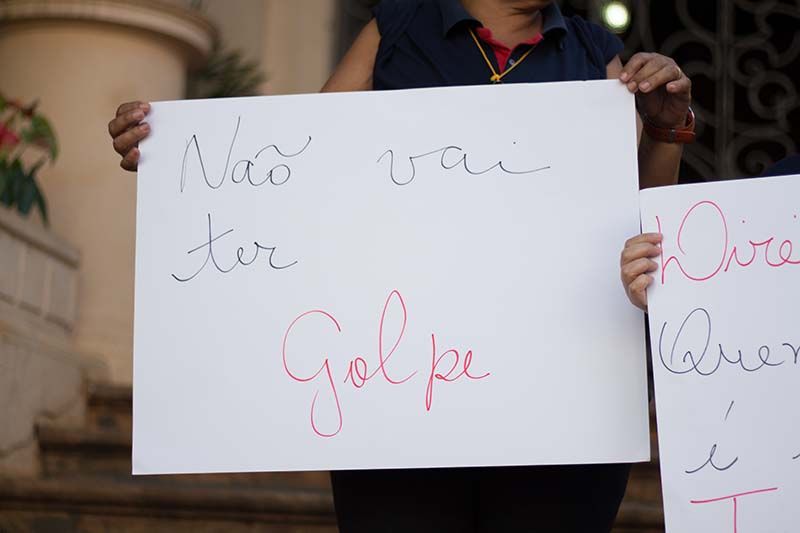 Não vai
ter
Golpe
Direi
Quem
é
T